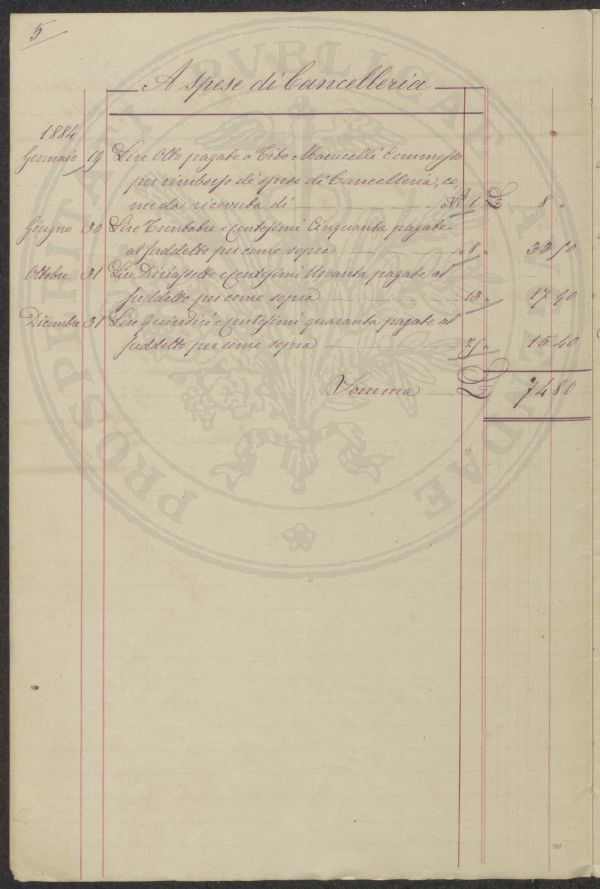 5
A spese di Cancelleria
1884
Gennaio 19 Lire Otto pagate a Tito Marucelli Commesso
per rimborso di spese di Cancelleria, co,
me da ricevuta di N.° 1 L 8 "
Giugno 30 Lire Trentatre e Centesimi Cinquanta pagate
al suddetto per come sopra " 8 " 33 50
Ottobre 31 Lire Diciassette e Centesimi Novanta pagate al
suddetto per come sopra 13 " 17 90
Dicembre 31 Lire Quindici e Centesimi quaranta pagate al
suddetto per come sopra " 15 40
Somma L 74 80
PROSPERITATI PVBLICAE AVGENDAE